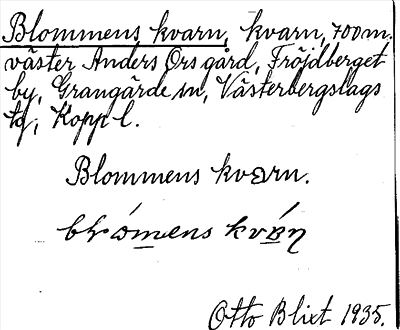 Blommens kvarn, kvarn, 700 m.
väster Anders Ors gård, Fröjdberget
by, Grangärde sn, Västerbergslags
tg; Kopp l.
Blommens kvarn.
Otto Blixt 1935.